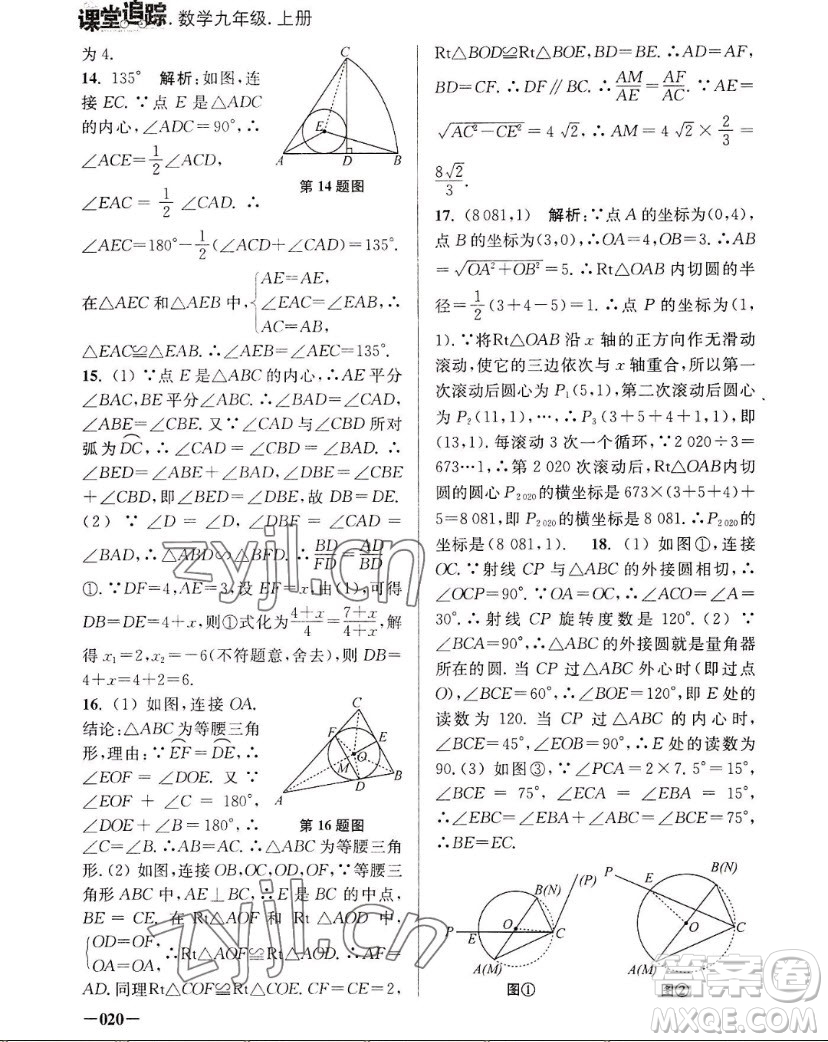 课堂追踪. 数学九年级. 上册
为 4.
14. 135° 解析:如图,连
接 EC. ∵点 E 是△ADC
的内心,∠ADC=90°,∴
∠ACE=1/2∠ACD,
∠EAC=1/2∠CAD. ∴
∠AEC=180°-1/2(∠ACD+∠CAD)=135°.
在△AEC 和△AEB 中,{AE=AE,
∠EAC=∠EAB, ∴
AC=AB,
△EAC≌△EAB. ∴∠AEB=∠AEC=135°.
C
E
A D B
第 14 题图
15. (1) ∵点 E 是△ABC 的内心,∴AE 平分
∠BAC,BE 平分∠ABC. ∴∠BAD=∠CAD,
∠ABE=∠CBE. 又∵∠CAD 与∠CBD 所对
弧为DC,∴∠CAD=∠CBD=∠BAD. ∴
∠BED=∠ABE+∠BAD,∠DBE=∠CBE
+∠CBD,即∠BED=∠DBE,故 DB=DE.
(2) ∵ ∠D = ∠D, ∠DBF = ∠CAD =
∠BAD,∴△ABD∽△BFD. ∴BD/FD=AD/BD
①. ∵DF=4,AE=3,设 EF=x,由(1),可得
DB=DE=4+x,则①式化为(4+x)/4=(7+x)/(4+x),解
得 x₁=2,x₂=-6(不符题意,舍去),则 DB=
4+x=4+2=6.
16. (1) 如图,连接 OA.
结论:△ABC 为等腰三角
形,理由:∵EF=DE,∴
∠EOF=∠DOE. 又∵
∠EOF + ∠C = 180°,
∠DOE+∠B=180°,∴
∠C=∠B. ∴AB=AC. ∴△ABC 为等腰三角
形. (2) 如图,连接 OB,OC,OD,OF,∵等腰三
角形 ABC 中,AE⊥BC,∴E 是 BC 的中点,
BE = CE. 在 Rt△AOF 和 Rt△AOD 中,
{OD=OF,
OA=OA, ∴Rt△AOF≌Rt△AOD. ∴AF=
AD. 同理Rt△COF≌Rt△COE. CF=CE=2,
C
F E
O
M
A D B
第 16 题图
—020—
Rt△BOD≌Rt△BOE. BD=BE. ∴AD=AF,
BD=CF. ∴DF∥BC. ∴AM/AE=AF/AC. ∵AE=
√(AC²-CE²)=4√2,∴AM=4√2×2/3=
8√2/3.
17. (8 081,1) 解析:∵点 A 的坐标为(0,4),
点 B 的坐标为(3,0),∴OA=4,OB=3. ∴AB
=√(OA²+OB²)=5. ∴Rt△OAB 内切圆的半
径=1/2(3+4-5)=1. ∴点 P 的坐标为(1,
1). ∵将Rt△OAB 沿 x 轴的正方向作无滑动
滚动,使它的三边依次与 x 轴重合,所以第一次
滚动后圆心为 P₁(5,1),第二次滚动后圆心
为 P₂(11,1),…,∴P₃(3+5+4+1,1),即
(13,1). 每滚动 3 次一个循环,∵2 020÷3=
673…1,∴第 2 020 次滚动后,Rt△OAB内切
圆的圆心 P₂₀₂₀的横坐标是 673×(3+5+4)+
5=8 081,即 P₂₀₂₀的横坐标是 8 081. ∴P₂₀₂₀的
坐标是(8 081,1) 18. (1) 如图①,连接
OC. ∵射线 CP 与△ABC 的外接圆相切,∴
∠OCP=90°. ∵OA=OC,∴∠OCA=∠A=
30°. ∴射线 CP 旋转度数是 120°. (2) ∵
∠BCA=90°,∴△ABC 的外接圆就是量角器
所在的圆. 当 CP 过△ABC 外心时(即过点
O),∠BCE=60°,∴∠BOE=120°,即 E 处的
读数为 120. 当 CP 过△ABC 的内心时,
∠BCE=45°,∠EOB=90°,∴E 处的读数为
90. (3) 如图③,∵∠PCA=2×7.5°=15°,
∠BCE = 75°, ∠ECA = ∠EBA = 15°,
∴∠EBC=∠EBA+∠ABC=∠BCE=75°,
∴BE=EC.
B(N) (P)
O
P E C
A(M)
图①
P E B(N)
O
A(M) C
图②
zyjl.cn
zyjl.cn
答案圈
MXQE.COM